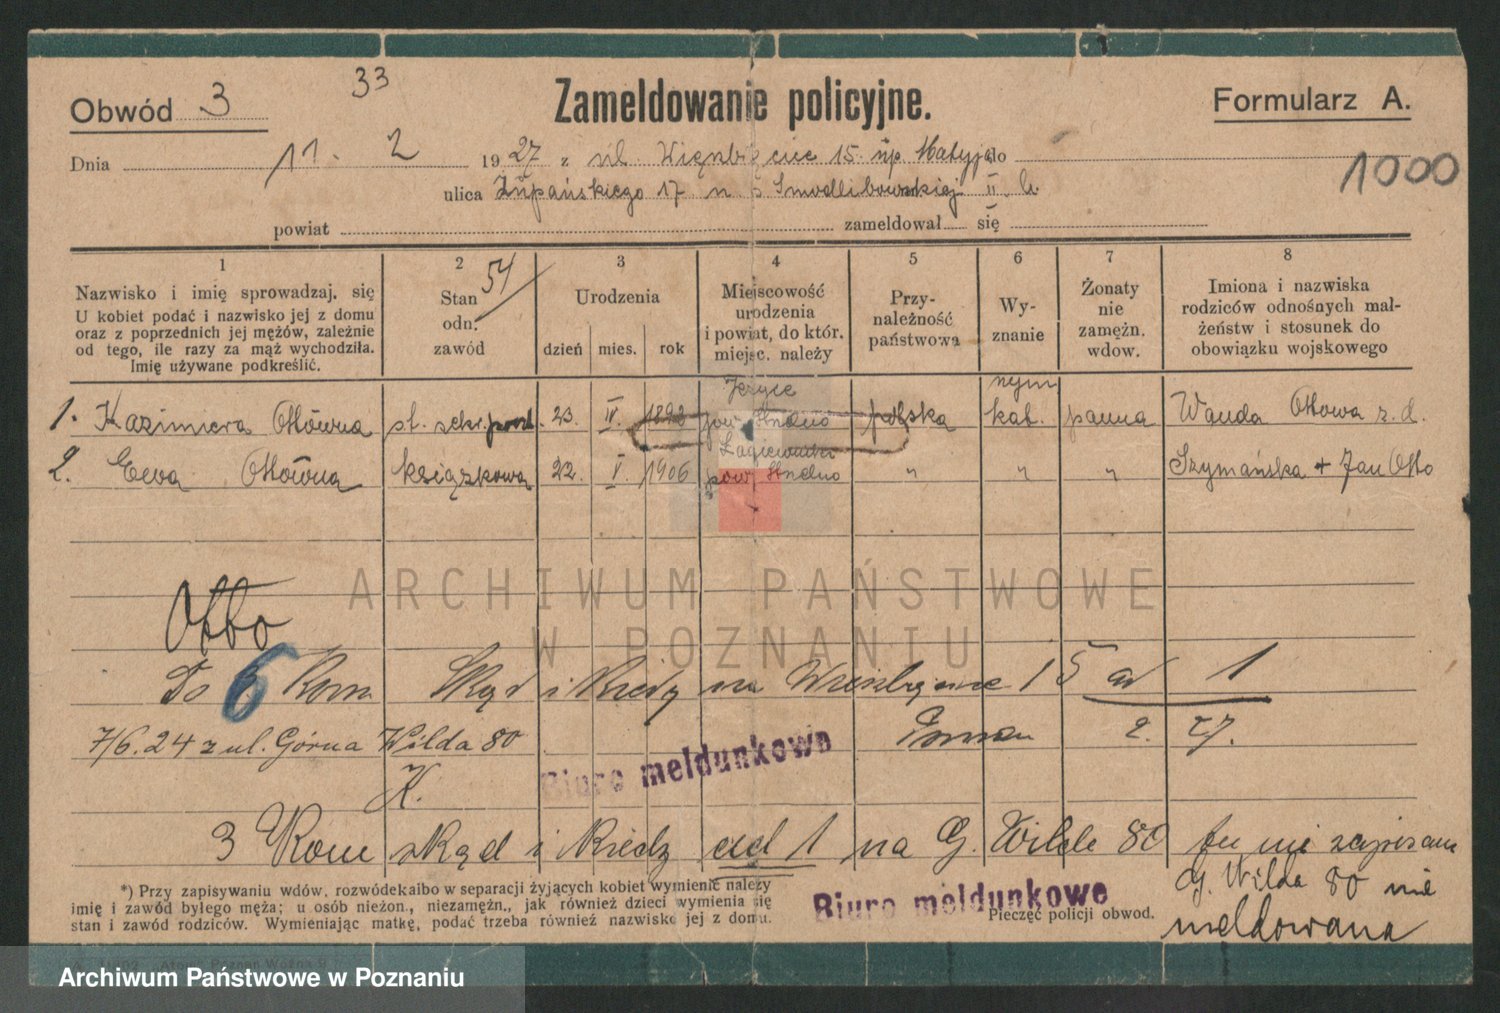 33
Obwód 3
Zameldowanie policyjne.
Formularz A.
Dnia 11. 2 1927 z ul. 15. do
1000
ulica Żupańskiego 17 II.
powiat zameldował się
1 2 3 4 5 6 7 8
54
Nazwisko i imię sprowadzaj. się
U kobiet podać i nazwisko jej z domu
oraz z poprzednich jej mężów, zależnie
od tego, ile razy za mąż wychodziła.
Imię używane podkreślić.
Stan
odn.
zawód
Urodzenia
dzień mies. rok
Miejscowość
urodzenia
i powiat, do któr.
miejsc. należy
Przy-
należność
państwowa
Wy-
znanie
Żonaty
nie
zamężn.
wdow.
Imiona i nazwiska
rodziców odnośnych mał-
żeństw i stosunek do
obowiązku wojskowego
Jeżyce rzym
1. Kazimiera Ottówna st. sekr. 23. IV 1892 polska kat. panna Wanda Ottowa z. d.
2. Ewa Ottówna książkowa 22. V. 1906 pow. " " " Szymańska + Jan Otto
ARCHIWUM PAŃSTWOWE
W POZNANIU
Otto
Do 6 Kom. Skąd i kiedy na 15 ad 1
7/6.24 z ul. Górna Wilda 80 2. 27.
Biuro meldunkowe
K.
3 Kom skąd i kiedy ad 1 na G. Wilde 80 tu nie zapisana
G. Wilda 80 nie
meldowana
*) Przy zapisywaniu wdów, rozwódek albo w separacji żyjących kobiet wymienić należy
imię i zawód byłego męża; u osób nieżon., niezamężn., jak również dzieci wymienia się
stan i zawód rodziców. Wymieniając matkę, podać trzeba również nazwisko jej z domu.
Biuro meldunkowe
Pieczęć policji obwod.
Archiwum Państwowe w Poznaniu